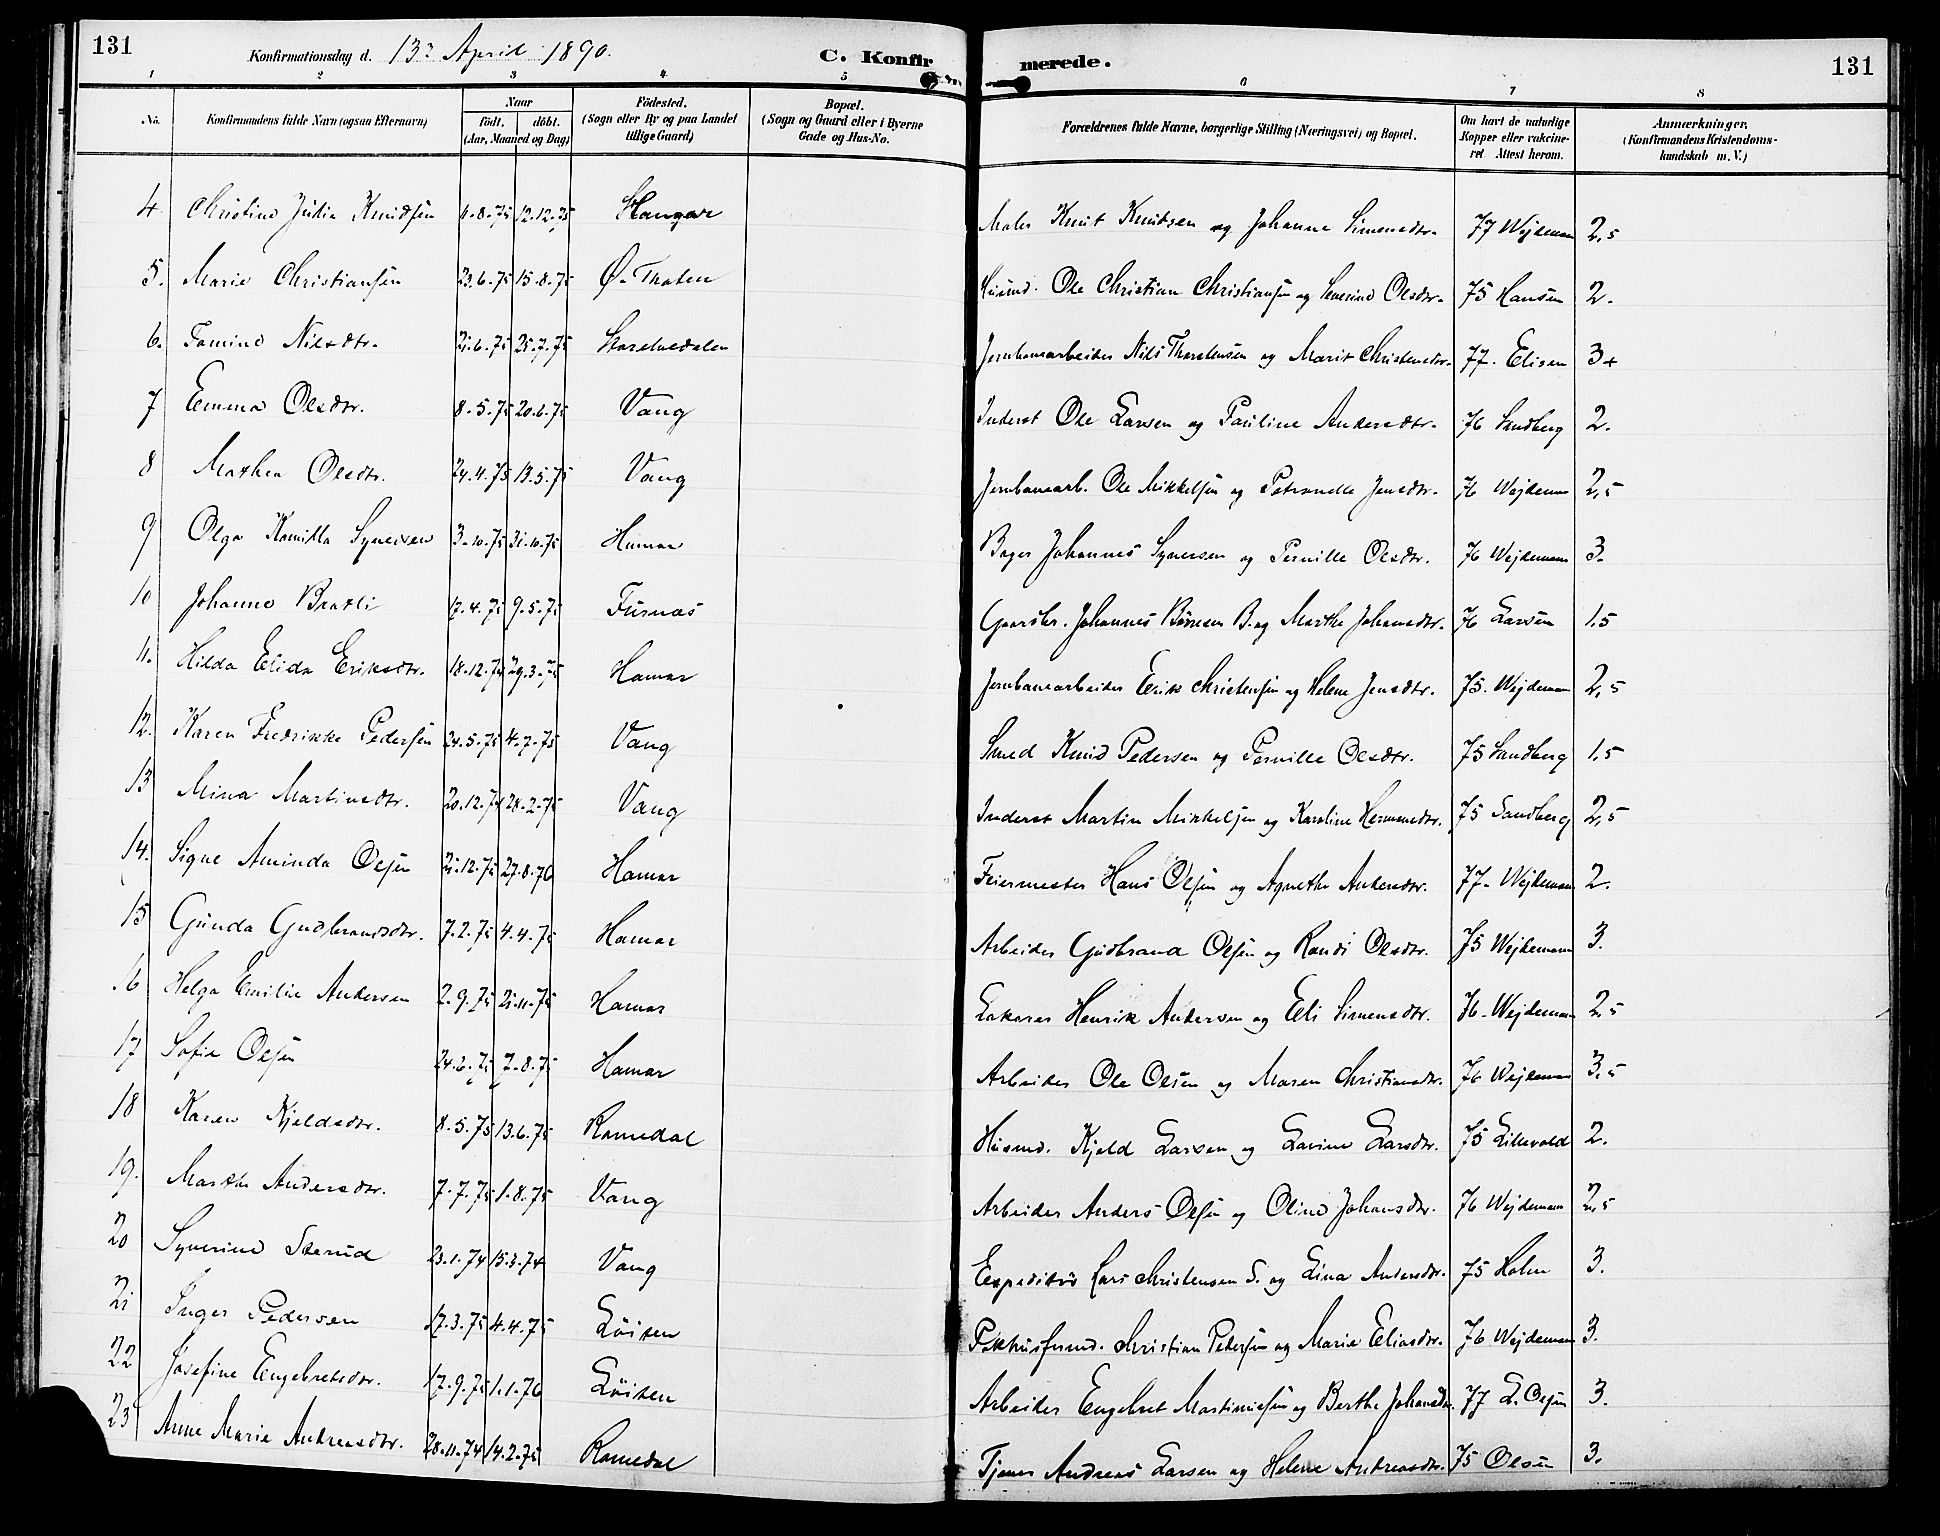 131 Konfirmationsdag d. 13de April 1890. C. Konfirmerede. 131
1 2 3 4 5 6 7 8
No. Konfirmandens fulde Navn (ogsaa Efternavn) Naar födt. döbt. (Aar, Maaned og Dag) Födested. (Sogn eller By og paa Landet tillige Gaard) Bopæl. (Sogn og Gaard eller i Byerne Gade og Hus-No. Forældrenes fulde Navne, borgerlige Stilling (Næringsvei) og Bopæl. Om havt de naturlige Kopper eller vakcineret. Attest herom. Anmærkninger. (Konfirmandens Kristendomskundskab m. V.)
4 Christine Julie Knudsen 11.8.75 12.12.75 Stangar Maler Knut Knutsen og Johanne Simensdtr. 77 Wejdeman 2,5
5. Marie Christiansen 23.6.75 15.8.75 Ø. Thoten Husmd. Ole Christian Christiansen og Severine Olsdtr. 75 Hansen 2.
6. Tomine Nilsdtr. 21.6.75 25.7.75 Storelvedalen Jernbanearbeider Nils Thorstensen og Marit Christensdtr. 77. Elisen 3+
7 Emma Olsdtr. 8.5.75 20.6.75 Vang Inderst Ole Larsen og Pauline Andersdtr. 76 Sandberg 2.
8 Mathea Olsdtr. 24.4.75 13.5.75 Vang Jernbanearb. Ole Mikkelsen og Petronelle Jensdtr. 76 Wejdeman 2,5
9 Olga Kamilla Syversen 3.10.75 31.10.75 Hamar Bager Johannes Syversen og Pernille Olsdtr. 76 Wejdemann 3.
10 Johanne Bratli 17.4.75 9.5.75 Furnæs Gaardbr. Johannes Børresen B. og Marthe Johansdtr. 76 Larsen 1.5
11. Hilda Elida Eriksdtr. 18.12.74 29.3.75 Hamar Jernbanearbeider Erik Christensen og Helene Jensdtr. 75. Wejdeman 2,5
12. Karen Fredrikke Pedersen 24.5.75 4.7.75 Vang Smed Knud Pedersen og Pernille Olsdtr. 75 Sandberg 1,5
13 Mina Martinsdtr. 20.12.74 28.2.75 Vang Inderst Martin Mikkelsen og Karoline Hermansdtr. 75 Sandberg 2,5
14. Signe Aminda Olsen 21.12.75 27.8.76 Hamar Feiermester Hans Olsen og Agnethe Andersdtr. 77. Wejdeman 2.
15 Gunda Gudbrandsdtr. 7.2.75 4.4.75 Hamar Arbeider Gudbrand Olsen og Randi Olsdtr. 75 Wejdemann 3.
16 Helga Emilie Andersen 2.9.75 21.11.75 Hamar Lakerer Henrik Andersen og Eli Simensdtr. 76. Wejdeman 2,5
17 Sofie Olsen 24.6.75 7.8.75 Hamar Arbeider Ole Olsen og Maren Christiansdtr. 76 Wejdeman 3,5
18 Karen Kjeldsdtr. 8.5.75 13.6.75 Romedal Husmd. Kjeld Larsen og Lavine Larsdtr. 75 Lillevold 2.
19. Marthe Andersdtr. 7.7.75 1.8.75 Vang Arbeider Anders Olsen og Oline Johansdtr. 76 Wejdeman 2,5
20 Syverine Sterud 23.1.74 15.3.74 Vang Expeditør Lars Christensen S. og Lina Andersdtr. 75 Holm 3.
21 Inger Pedersen 17.3.75 4.4.75 Löiten Pakhusformd. Christian Pedersen og Marie Eliasdtr. 76 Wejdeman 3.
22 Josefine Engebretsdtr. 17.9.75 1.1.76 Löiten Arbeider Engebret Martiniusen og Berthe Johansdtr. 77 L. Olsen 3.
23 Anne Marie Andreasdtr. 28.11.74 14.2.75 Romedal Tjener Andreas Larsen og Helene Andreasdtr. 75 Olsen 3.